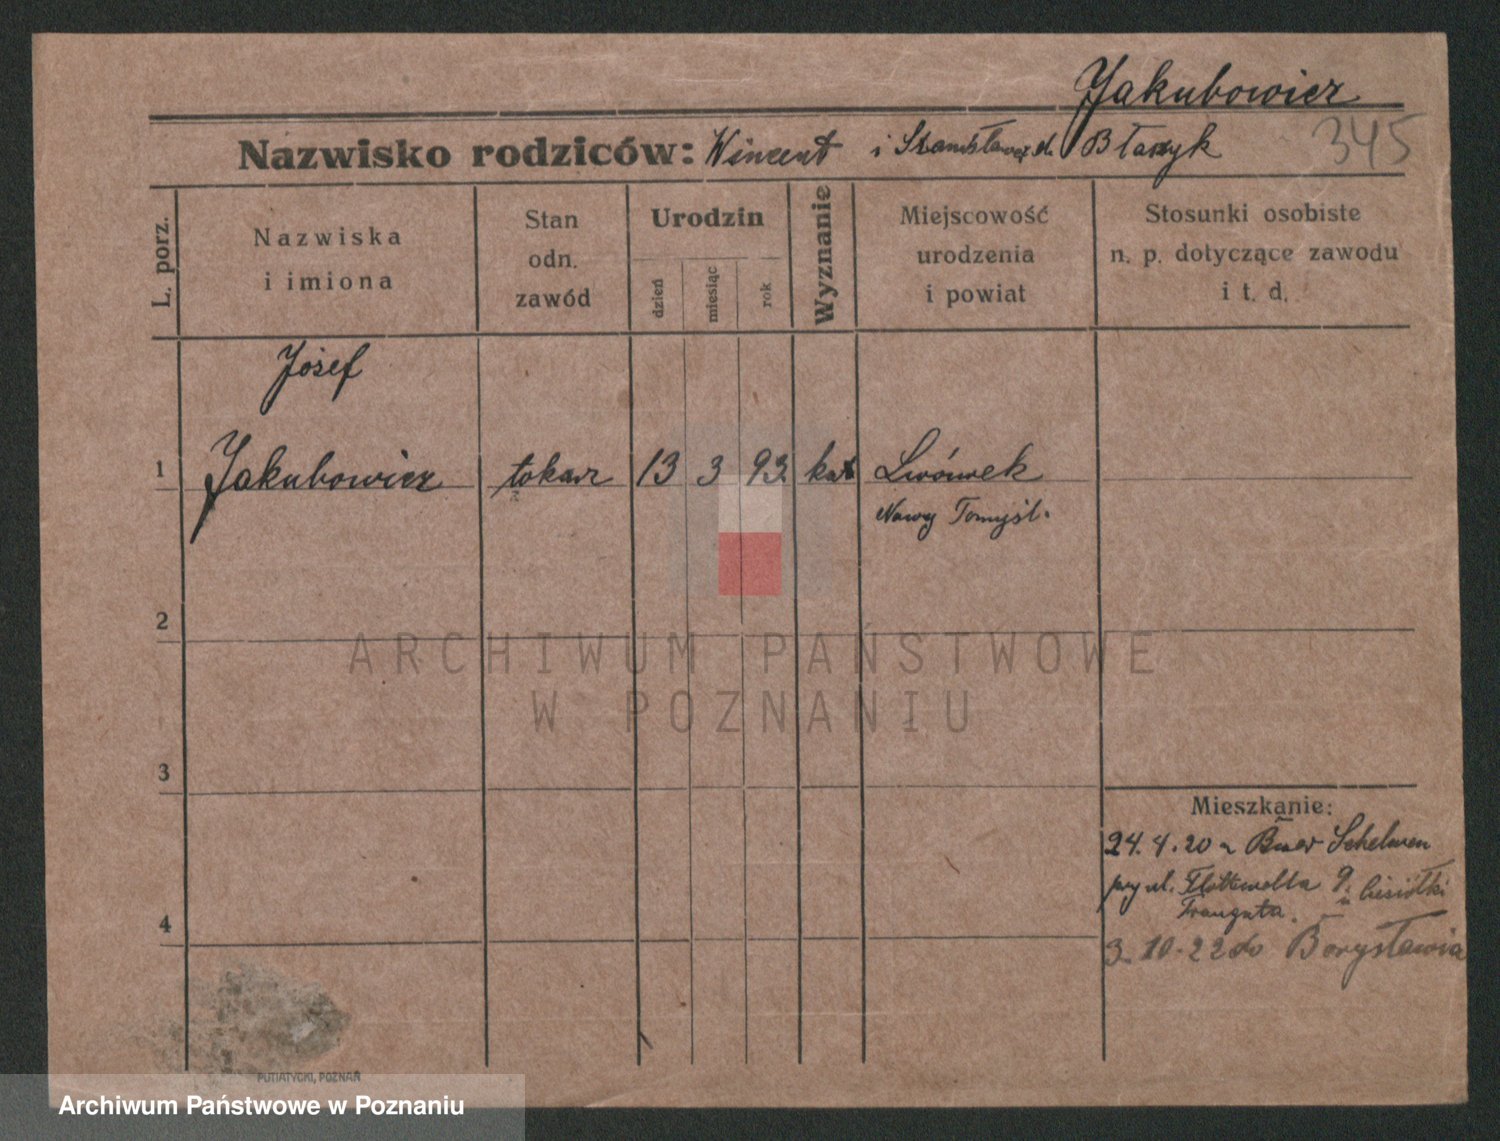 Jakubowicz
345
Nazwisko rodziców: Wincent i Stanisława d. Błaszyk
L. porz.
Nazwiska
i imiona
Stan
odn.
zawód
Urodzin
dzień
miesiąc
rok
Wyznanie
Miejscowość
urodzenia
i powiat
Stosunki osobiste
n. p. dotyczące zawodu
i t. d.
Józef
1 Jakubowicz tokarz 13 3 93 kat Lwówek
Nowy Tomyśl.
2
ARCHIWUM PAŃSTWOWE
W POZNANIU
3
Mieszkanie:
24. 4. 20 z
przy ul. Flottwella 9.
Traugutta.
4
3. 10. 22 do Borysławia
PUTIATYCKI, POZNAŃ
Archiwum Państwowe w Poznaniu